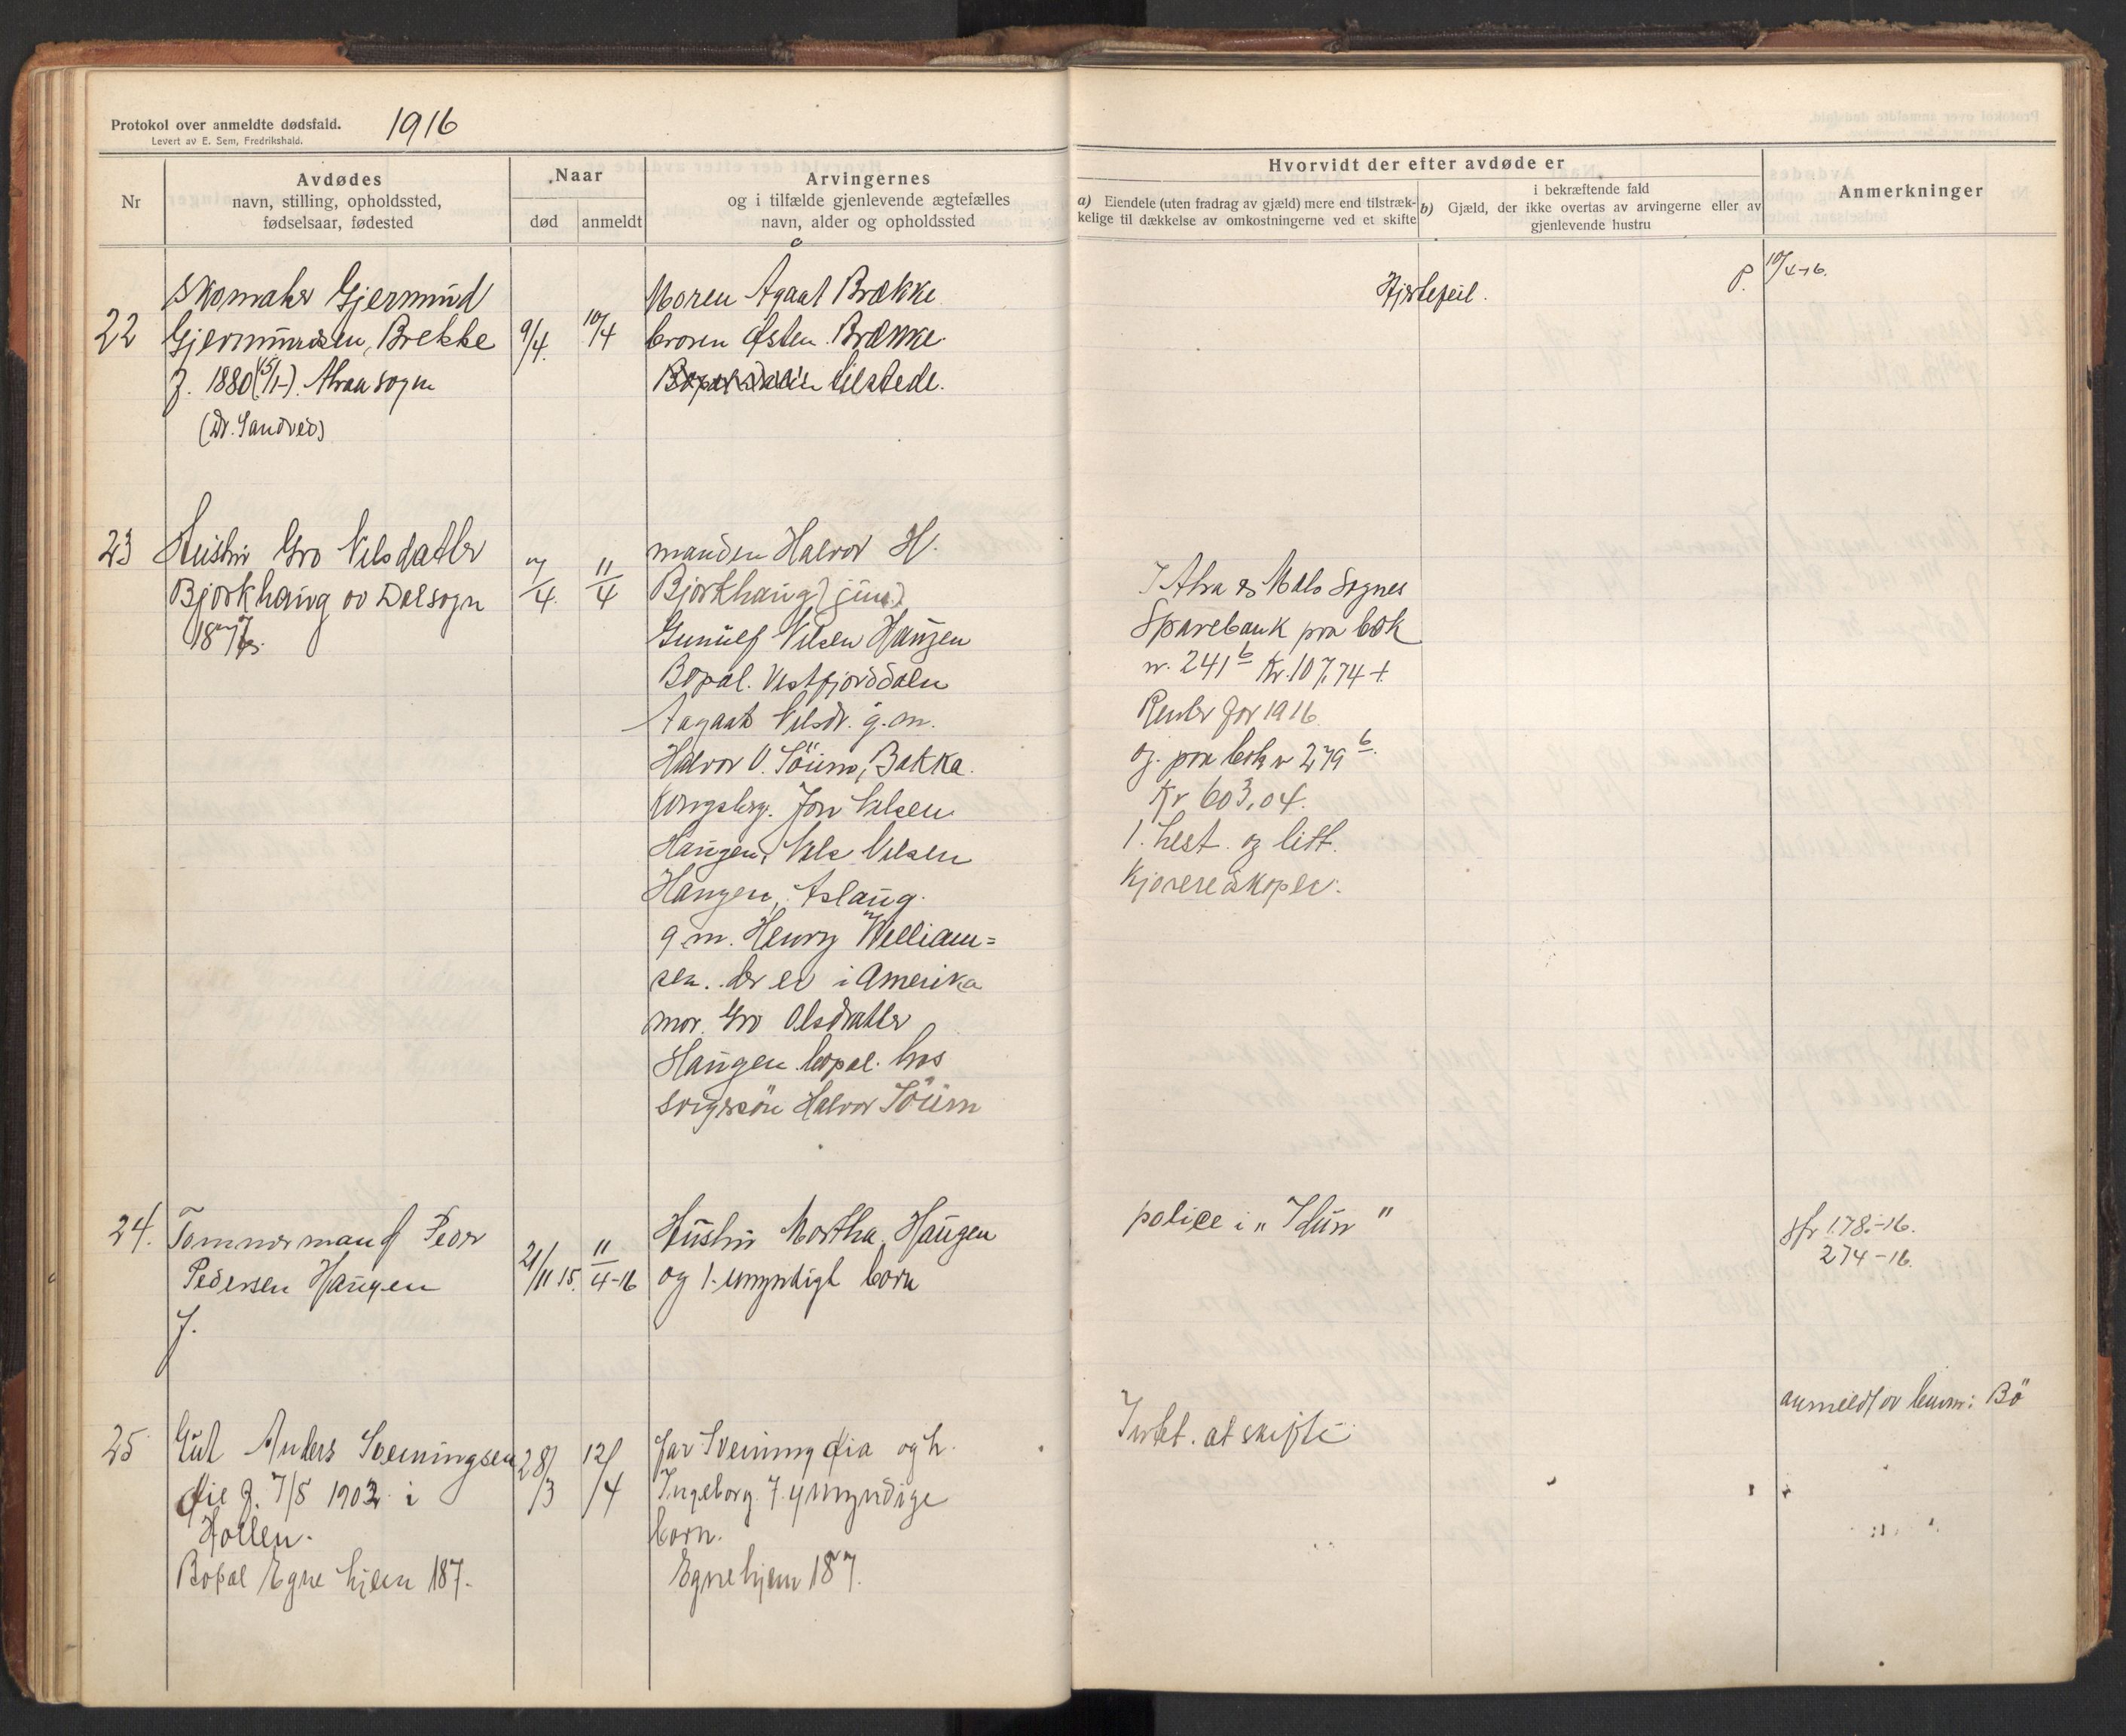 Protokol over anmeldte dødsfald. 1916
Levert av E. Sem, Fredrikshald.
Nr
Avdødes
navn, stilling, opholdssted,
fødselsaar, fødested
Naar
død
anmeldt
Arvingernes
og i tilfælde gjenlevende ægtefælles
navn, alder og opholdssted
Hvorvidt der efter avdøde er
a) Eiendele (uten fradrag av gjæld) mere end tilstræk-
kelige til dækkelse av omkostningerne ved et skifte
i bekræftende fald
b) Gjæld, der ikke overtas av arvingerne eller av
gjenlevende hustru
Anmerkninger
22
Skomaker Gjermund
Gjermundsen, Brekke
f. 1880 (15/1-). Atraa sogn
(Dr. Sandved)
9/4.
10/4
Moren Ågaat Brække
broren Østen Brække.
tilstede.
Hjertefeil.
P. 10/4-16.
23
Hustru Gro Nilsdatter
Bjørkhaug av Dal sogn
7/4.
11/4
manden Halvor H.
Bjørkhaug) jun)
Gunulf Nilsen Haugen
Bopæl. Vestfjorddalen
Aagaat Nilsdr. g. m.
Halvor O. Söum, Bakka.
Kongsberg. Jon Nilsen
Haugen, Nils Nilsen
Haugen, Aslaug.
g. m. Henry William=
sen. der er i Amerika
mor. Gro Olsdatter
Haugen. bopæl. hos
svigersön Halvor Söum
I Atra og Mæls Sognes
Sparebank paa bok
nr. 241 b Kr. 107,74 +
Renter for 1916
og. paa bok nr 279 b.
Kr 603,04.
1. hest. og litt.
Kjøreredskaper.
24.
Tømmermand Peder
Pedersen Haugen
f.
21/11 15.
11/4-16
Hustru Martha Haugen
og 1. umyndigt barn
police i „Idun"
Sfr 178.-16.
274-16.
25
Gut Anders Sveinungsen
Øie f. 7/5 1902 i
Hollen.
Bopæl Egne hjem 187.
28/3
12/4
far Sveinung Øia og h.
Ingeborg. 7. umyndige
børn.
Egnehjem 187.
Intet. at skifte.
anmeldt av lensm: Bö